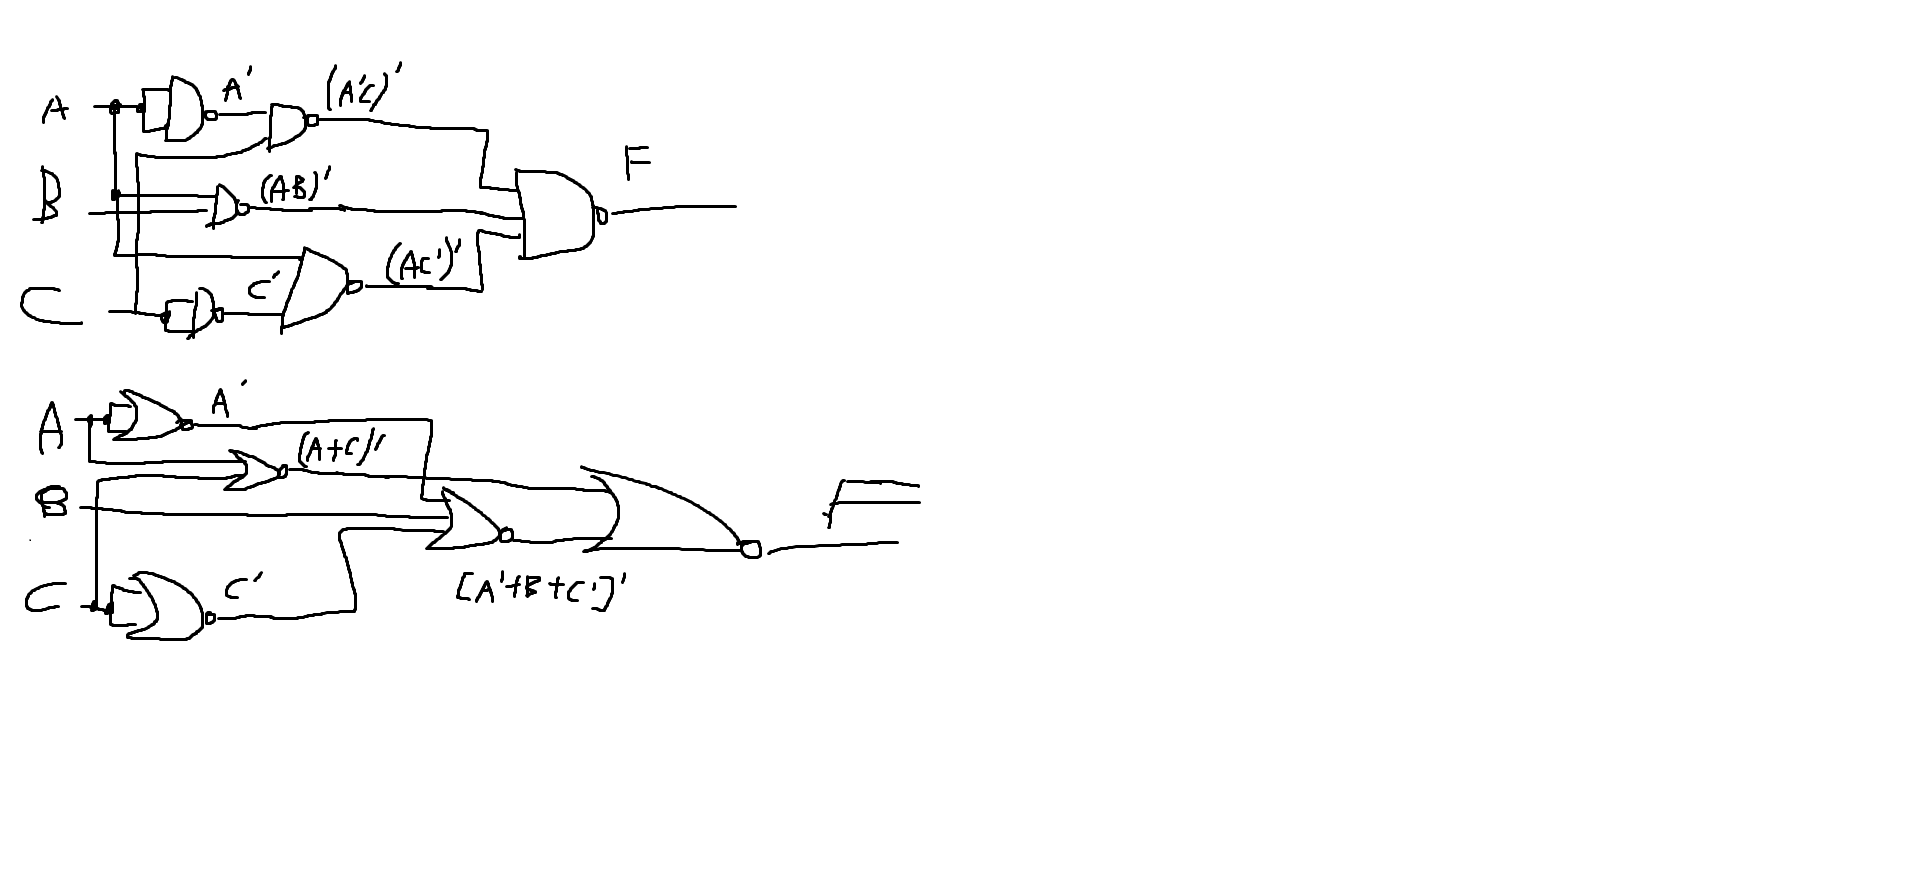 A
A'
(A'C)'
B
(AB)'
F
C
C'
(AC')'
A
A'
(A+C)'
B
F
C
C'
[A'+B+C']'